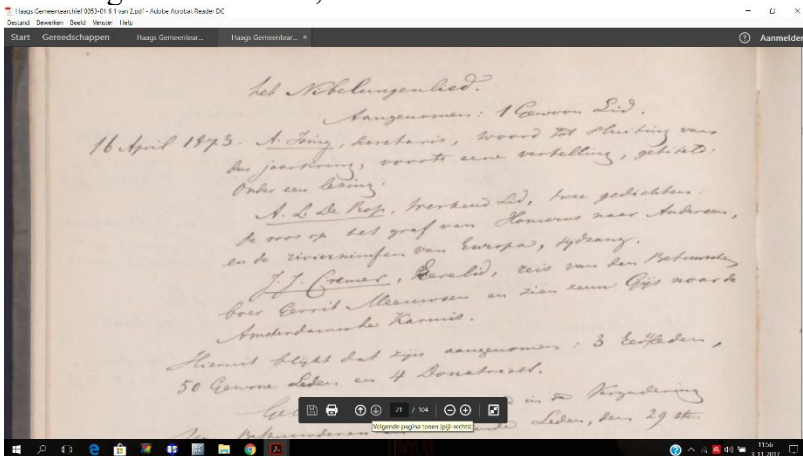 Haags Gemeentearchief 0053-01 6 1 van 2.pdf - Adobe Acrobat Reader DC
Bestand Bewerken Beeld Venster Help
Start Gereedschappen Haags Gemeentear... Haags Gemeentear... × Aanmelden
het Nibelungenlied.
Aangenomen: 1 Gewoon Lid.
16 April 1873. A. Ising, secretaris, woord tot sluiting van
den jaarkring, voorts eene vertelling, getiteld:
Onder een lezing.
A. L. De Rop, Werkend Lid, twee gedichten:
de roos op het graf van Homerus naar Andersen,
en de riviernimfen van Europa, tijdzang.
J. J. Cremer, Eerelid, reis van den Betuwschen
boer Gerrit Meeuwsen en zien zeun Gijs naar de
Amsterdamsche Karmis.
Hieruit blijkt dat zijn aangenomen: 3 Eereleden,
50 Gewone Leden en 4 Donatrices.
in de Vergadering
Leden, den 29 st.
21 / 104
Volgende pagina tonen (pijl-rechts)
11:56
3-11-2017